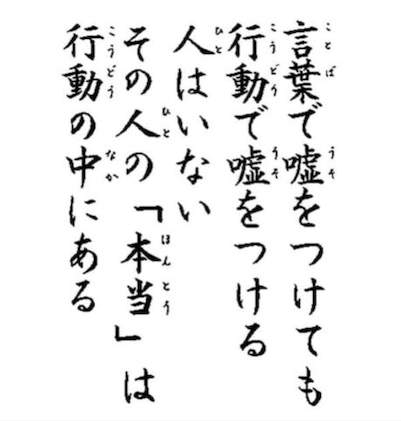 言葉で嘘をつけても
行動で嘘をつける
人はいない
その人の「本当」は
行動の中にある